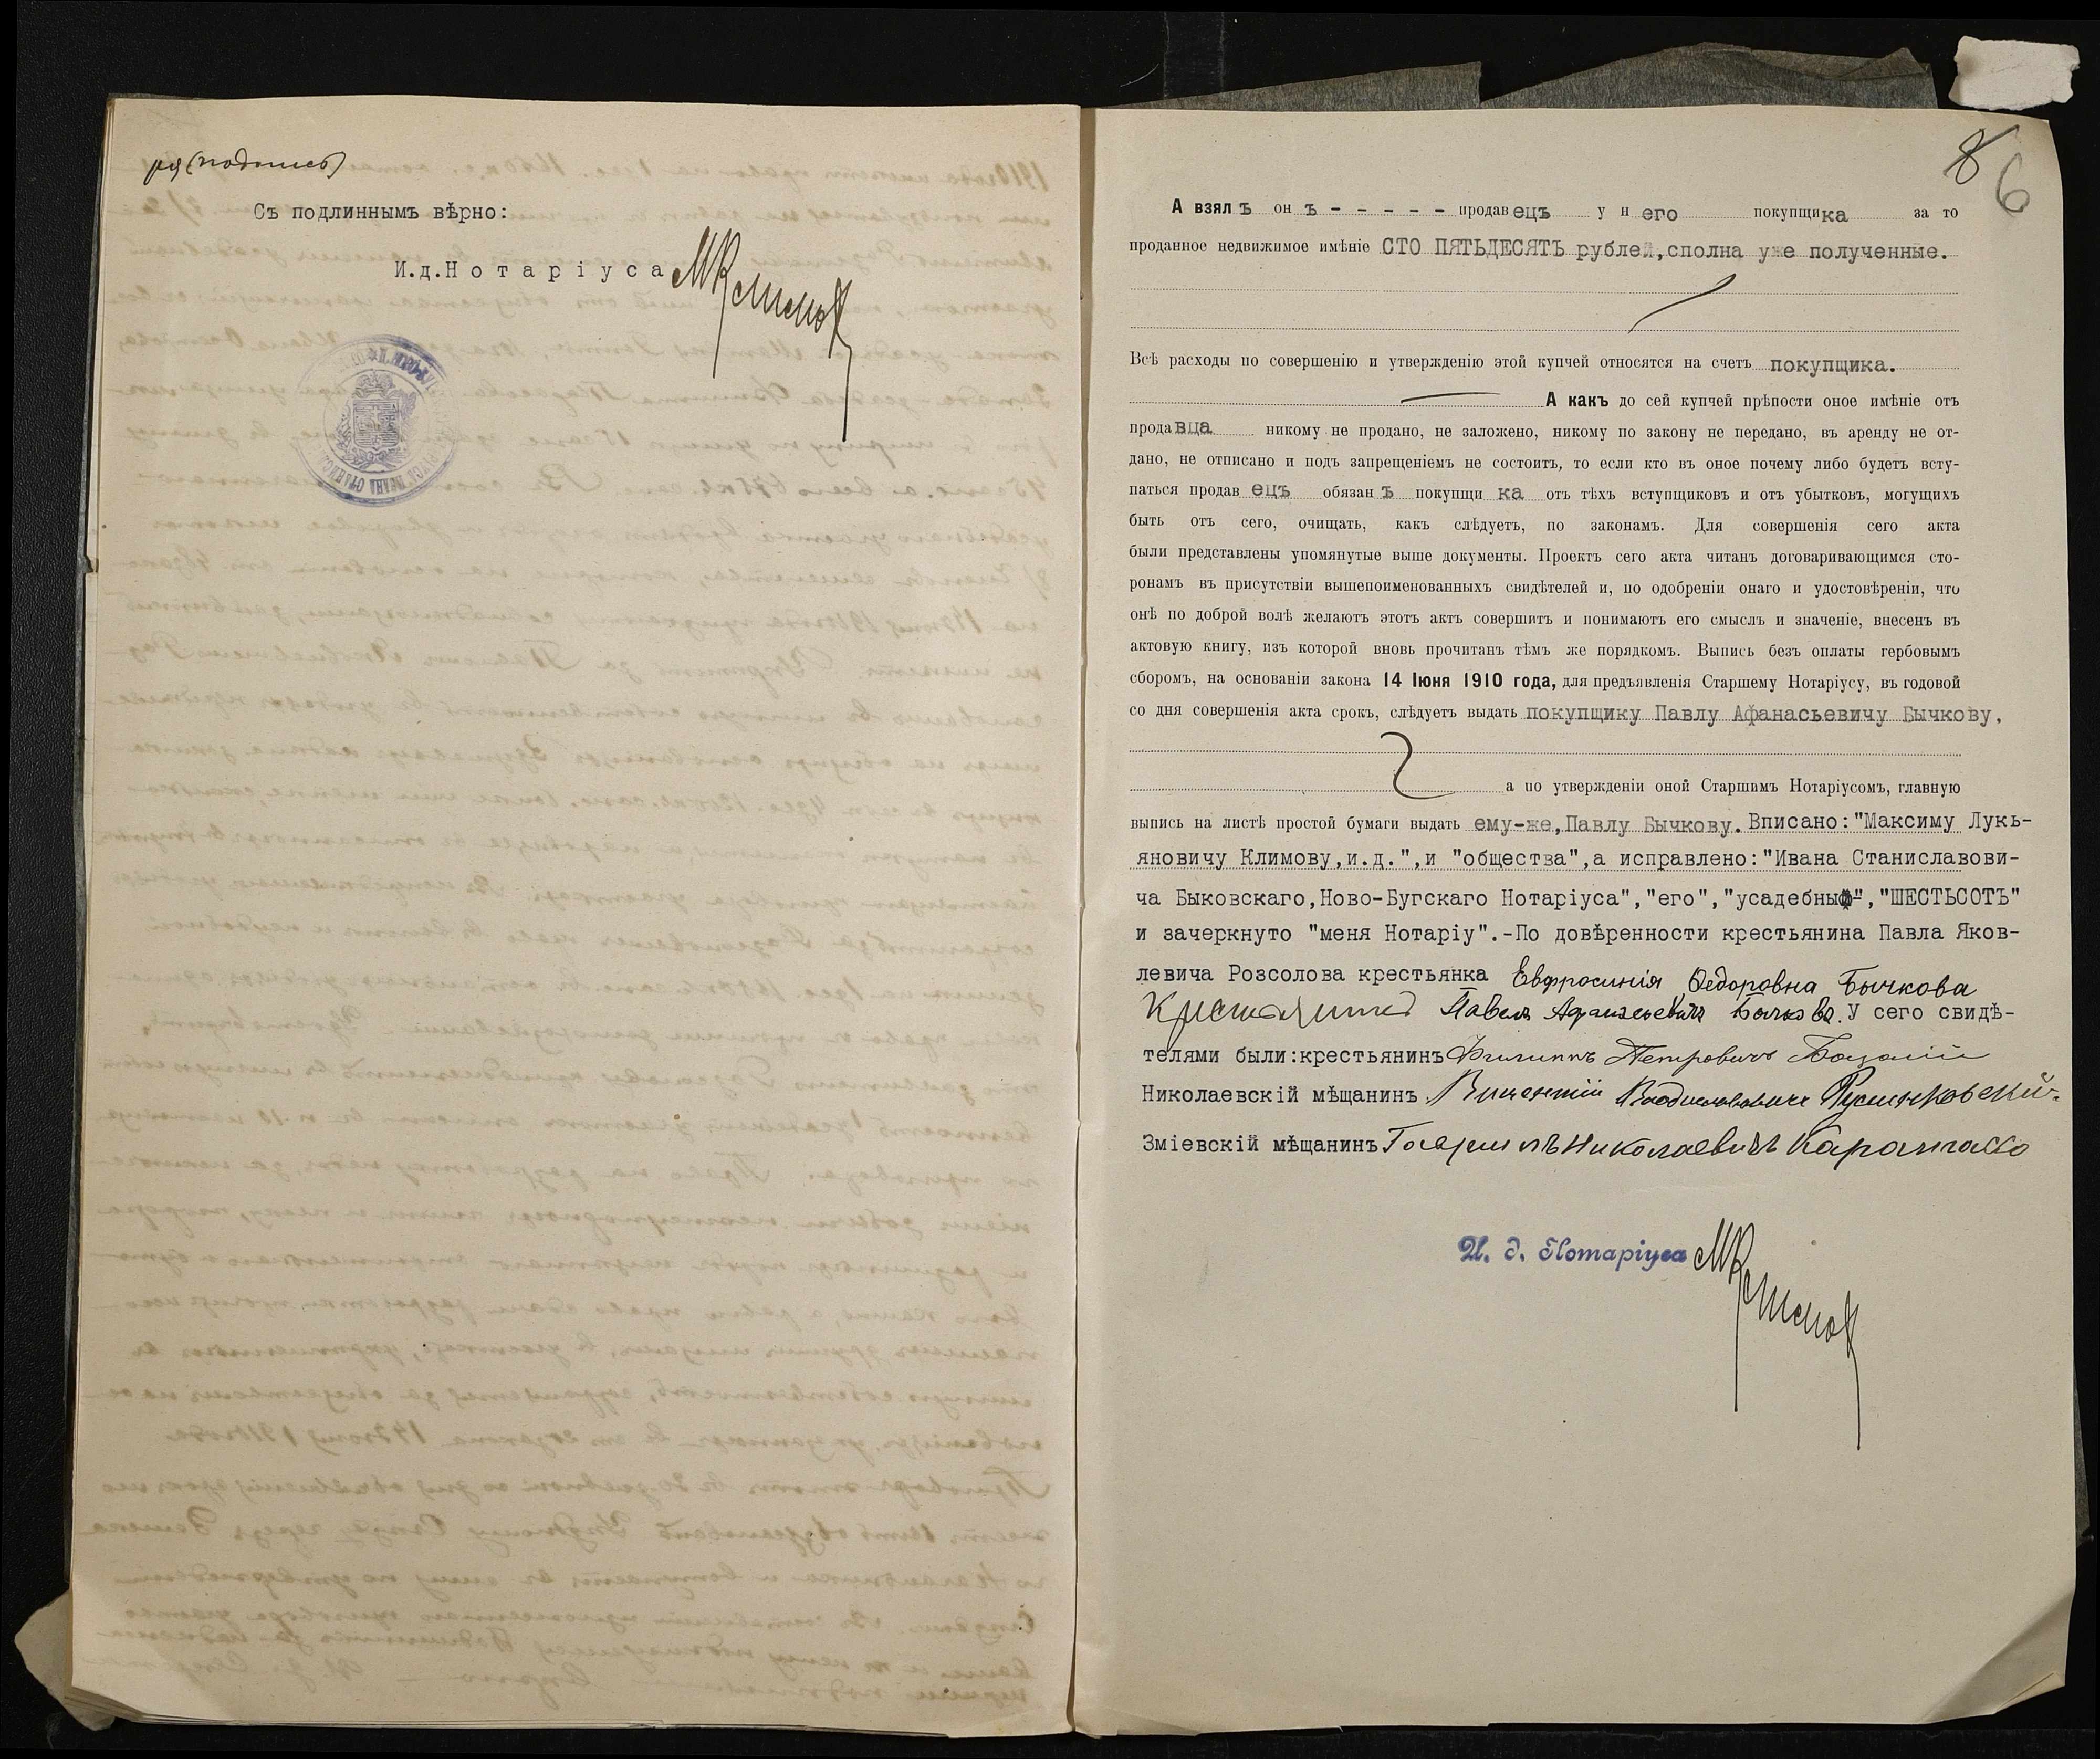 ря (подпись)
Съ подлиннымъ вѣрно:
И.д.Нотаріуса МКлимов
8 6
А взялъ онъ - - - - - продавецъ у него покупщика за то
проданное недвижимое имѣніе СТО ПЯТЬДЕСЯТЪ рублей, сполна уже полученные.
Всѣ расходы по совершенію и утвержденію этой купчей относятся на счетъ покупщика.
А какъ до сей купчей прѣпости оное имѣніе отъ
продавца никому не продано, не заложено, никому по закону не передано, въ аренду не от-
дано, не отписано и подъ запрещеніемъ не состоитъ, то если кто въ оное почему либо будетъ всту-
паться продавецъ обязанъ покупщика отъ тѣхъ вступщиковъ и отъ убытковъ, могущихъ
быть отъ сего, очищать, какъ слѣдуетъ, по законамъ. Для совершенія сего акта
были представлены упомянутые выше документы. Проектъ сего акта читанъ договаривающимся сто-
ронамъ въ присутствіи вышепоименованныхъ свидѣтелей и, по одобреніи онаго и удостовѣреніи, что
онѣ по доброй волѣ желаютъ этотъ актъ совершить и понимаютъ его смыслъ и значеніе, внесенъ въ
актовую книгу, изъ которой вновь прочитанъ тѣмъ же порядкомъ. Выпись безъ оплаты гербовымъ
сборомъ, на основаніи закона 14 Іюня 1910 года, для предъявленія Старшему Нотаріусу, въ годовой
со дня совершенія акта срокъ, слѣдуетъ выдать покупщику Павлу Афанасьевичу Бычкову,
а по утвержденіи оной Старшимъ Нотаріусомъ, главную
выпись на листѣ простой бумаги выдать ему-же, Павлу Бычкову. Вписано: "Максиму Лукь-
яновичу Климову, и.д.", и "общества", а исправлено: "Ивана Станиславови-
ча Быковскаго, Ново-Бугскаго Нотаріуса", "его", "усадебный", "ШЕСТЬСОТЪ"
и зачеркнуто "меня Нотаріу".-По довѣренности крестьянина Павла Яков-
левича Розсолова крестьянка Евфросинія Ѳедоровна Бычкова
Крестьянинъ Павелъ Афанасьевичъ Бычковъ. У сего свидѣ-
телями были: крестьянинъ Филиппъ Петровичъ
Николаевскій мѣщанинъ Викентій Владиславовичъ
Зміевскій мѣщанинъ Гавріилъ Николаевичъ
И. д. Нотаріуса МКлимов